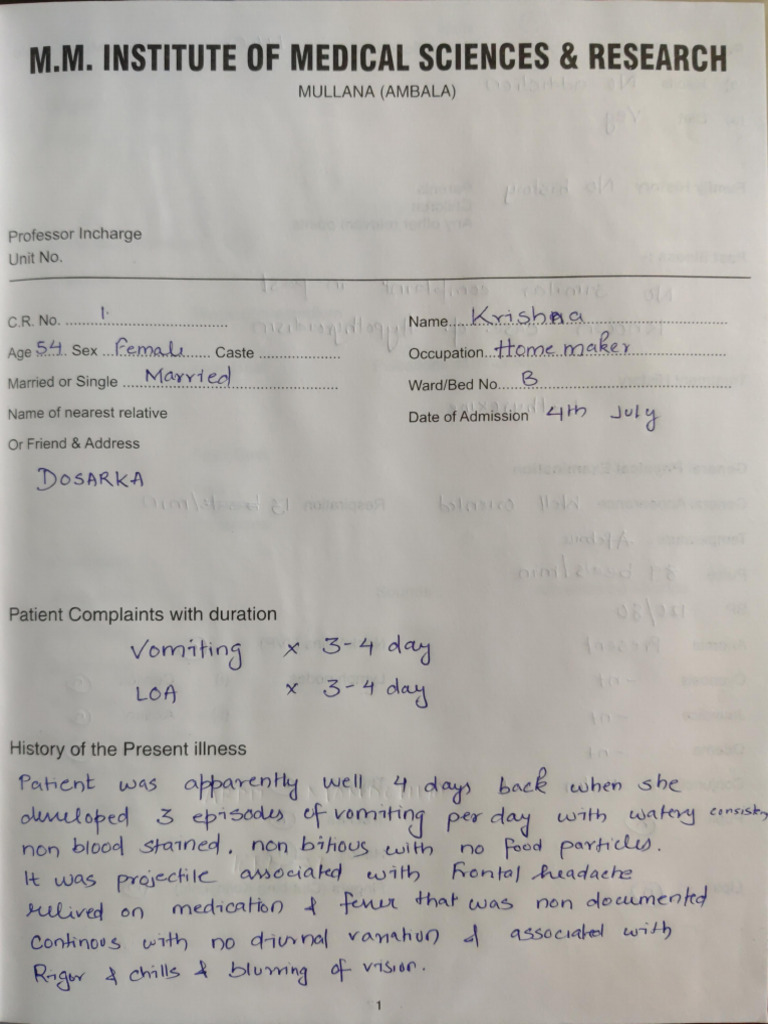 M.M. INSTITUTE OF MEDICAL SCIENCES & RESEARCH
MULLANA (AMBALA)
Professor Incharge
Unit No.
C.R. No. 1.
Name Krishna
Age 54 Sex Female Caste
Occupation Home maker
Married or Single Married
Ward/Bed No. B
Name of nearest relative
Date of Admission 4th July
Or Friend & Address
DOSARKA
Patient Complaints with duration
Vomiting x 3-4 day
LOA x 3-4 day
History of the Present illness
Patient was apparently well 4 days back when she
developed 3 episodes of vomiting per day with watery consisten
non blood stained, non bilious with no food particles.
It was projectile associated with Frontal headache
relived on medication & fever that was non documented
Continous with no diurnal variation & associated with
Rigor & chills & blurring of vision.
1